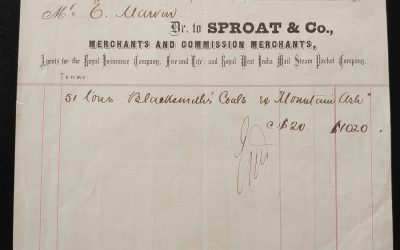 Mr. E. Marvin
Dr. to SPROAT & Co.,
MERCHANTS AND COMMISSION MERCHANTS,
Agents for the Royal Insurance Company, Fire and Life; and Royal West India Mail Steam Packet Company.
TERMS
51 tons Blacksmith's Coals "Mountain Ash"
$20. $1020